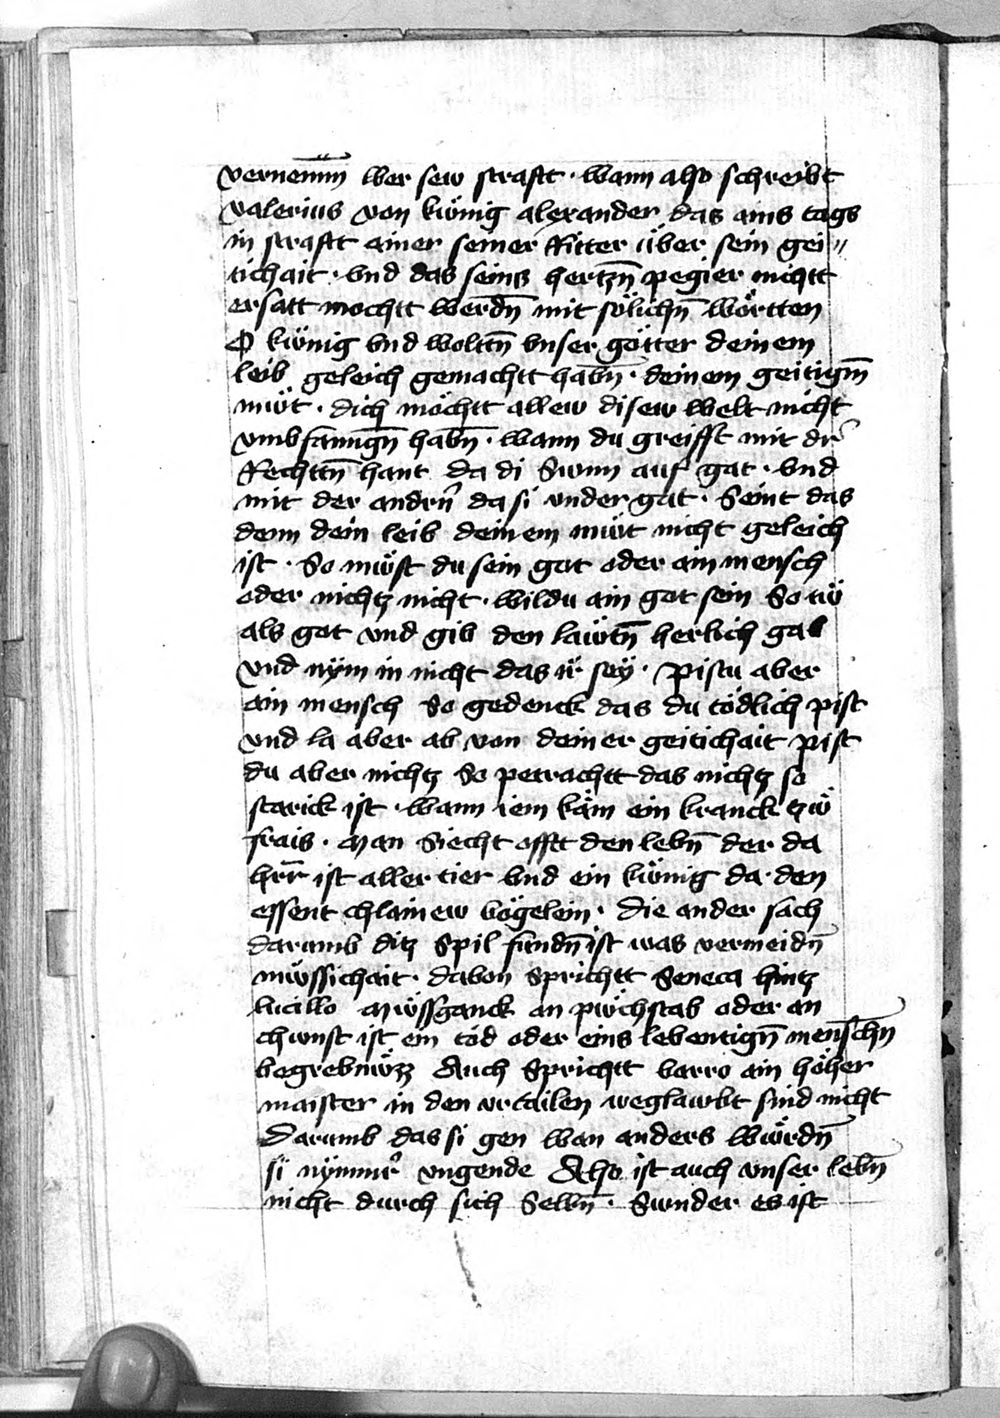 vernemm̄ wer sew strafft · wann also schreibt
valerius von kwnig alexander das ains tags
in strafft ainer seiner Ritter über sein gei〃
tichait · vnd das seins hertzn̄ pegier nichtt
ersatt mochtt werdn̄ mit sölichn̄ wörtten
O kwnig vnd woltn̄ vnser götter deinem
leib geleich gemachtt habn̄ · deinem geitigm̄
mwt · dich möchtt allew disew welt nicht
vmbfanngn̄ habn̄ · wann du greifft mit dr̄
Rechttn̄ hant da di Sunn auf gat · vnd
mit der andrn̄ da si vnder gat · Seint das
denn dein leib deinem mwt nicht geleich
ist · So mwst du sein got oder ain mensch
oder nichtz nicht · wildu ain got sein So tw
als got vnd gib den lawtn̄ herlich gab
vnd nÿm in nicht das ir seÿ · Pistu aber
ain mensch So gedenck das du tödlich pist
vnd la aber ab von deiner geitichait pist
du aber nichtz So petrachtt das nichtz so
starick ist · wann iem käm ein kranck tzw
frais · Man Siecht offtt den lebn̄ der da
hrr̄ ist aller tier vnd ein kwnig da · den
essent chlainew vögelein · Die ander sach
darumb ditz Spil fundn̄ ist was vermeidn̄
mwssichait · davon Sprichtt Seneca hintz
lucillo Mwssganck an pwchstab oder an
chunst ist ein tod oder eins lebentign̄ menschn̄
begrebnwzz Auch Sprichtt varro ain höher
maister in den vrtailen weglawbt sind nicht
Darumb das si gen wan anders wurdn̄
si nÿmmr̄ vngende Also ist auch vnser lebn̄
nicht durch sich Selbn̄ · Sunder es ist